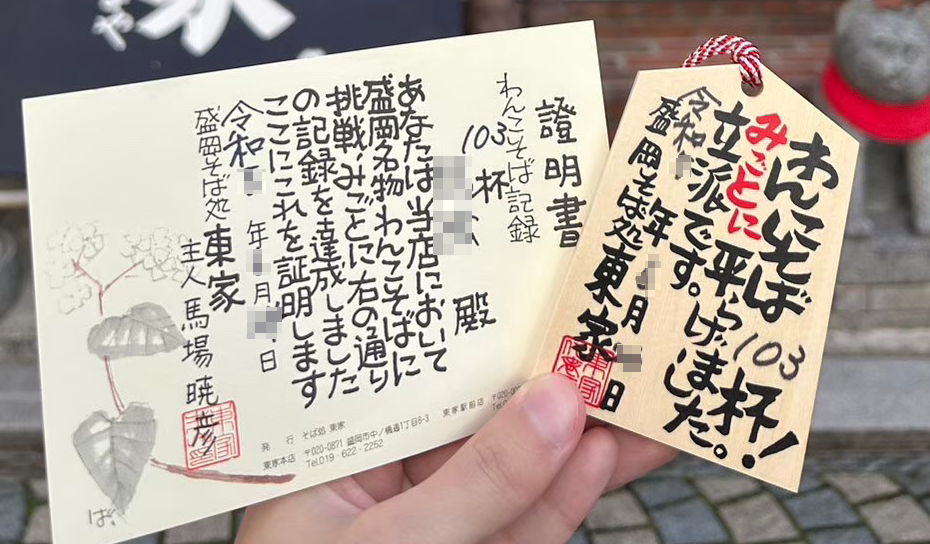 證明書
わんこそば記録
103杯
殿
あなたは当店において
盛岡名物わんこそばに
挑戦、みごとに右の通り
の記録を達成しました
ここにこれを証明します
令和 年 月 日
盛岡そば処 東家
主人 馬場 暁彦
発 行 そば処 東家
東家本店 〒020-0871 盛岡市中ノ橋通1丁目8-3
Tel.019-622-2252
東家駅前店
わんこそば 103 杯!
みごとに平らげました。
立派です。
令和 年 月 日
盛岡そば処 東家